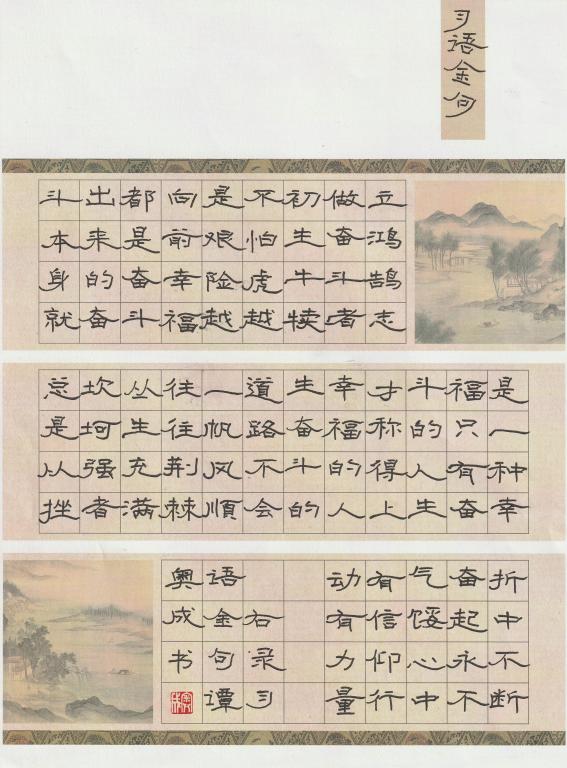 习语金句
立鸿鹄志
做奋斗者
初生牛犊
不怕虎越
是艰险越
向前幸福
都是奋斗
出来的奋
斗本身就
是一种幸
福只有奋
斗的人生
才称得上
幸福的人
生奋斗的
道路不会
一帆风順
往往荆棘
丛生充满
坎坷强者
总是从挫
折中不断
奋起永不
气馁心中
有信仰行
动有力量
右录习
语金句谭
奥成书